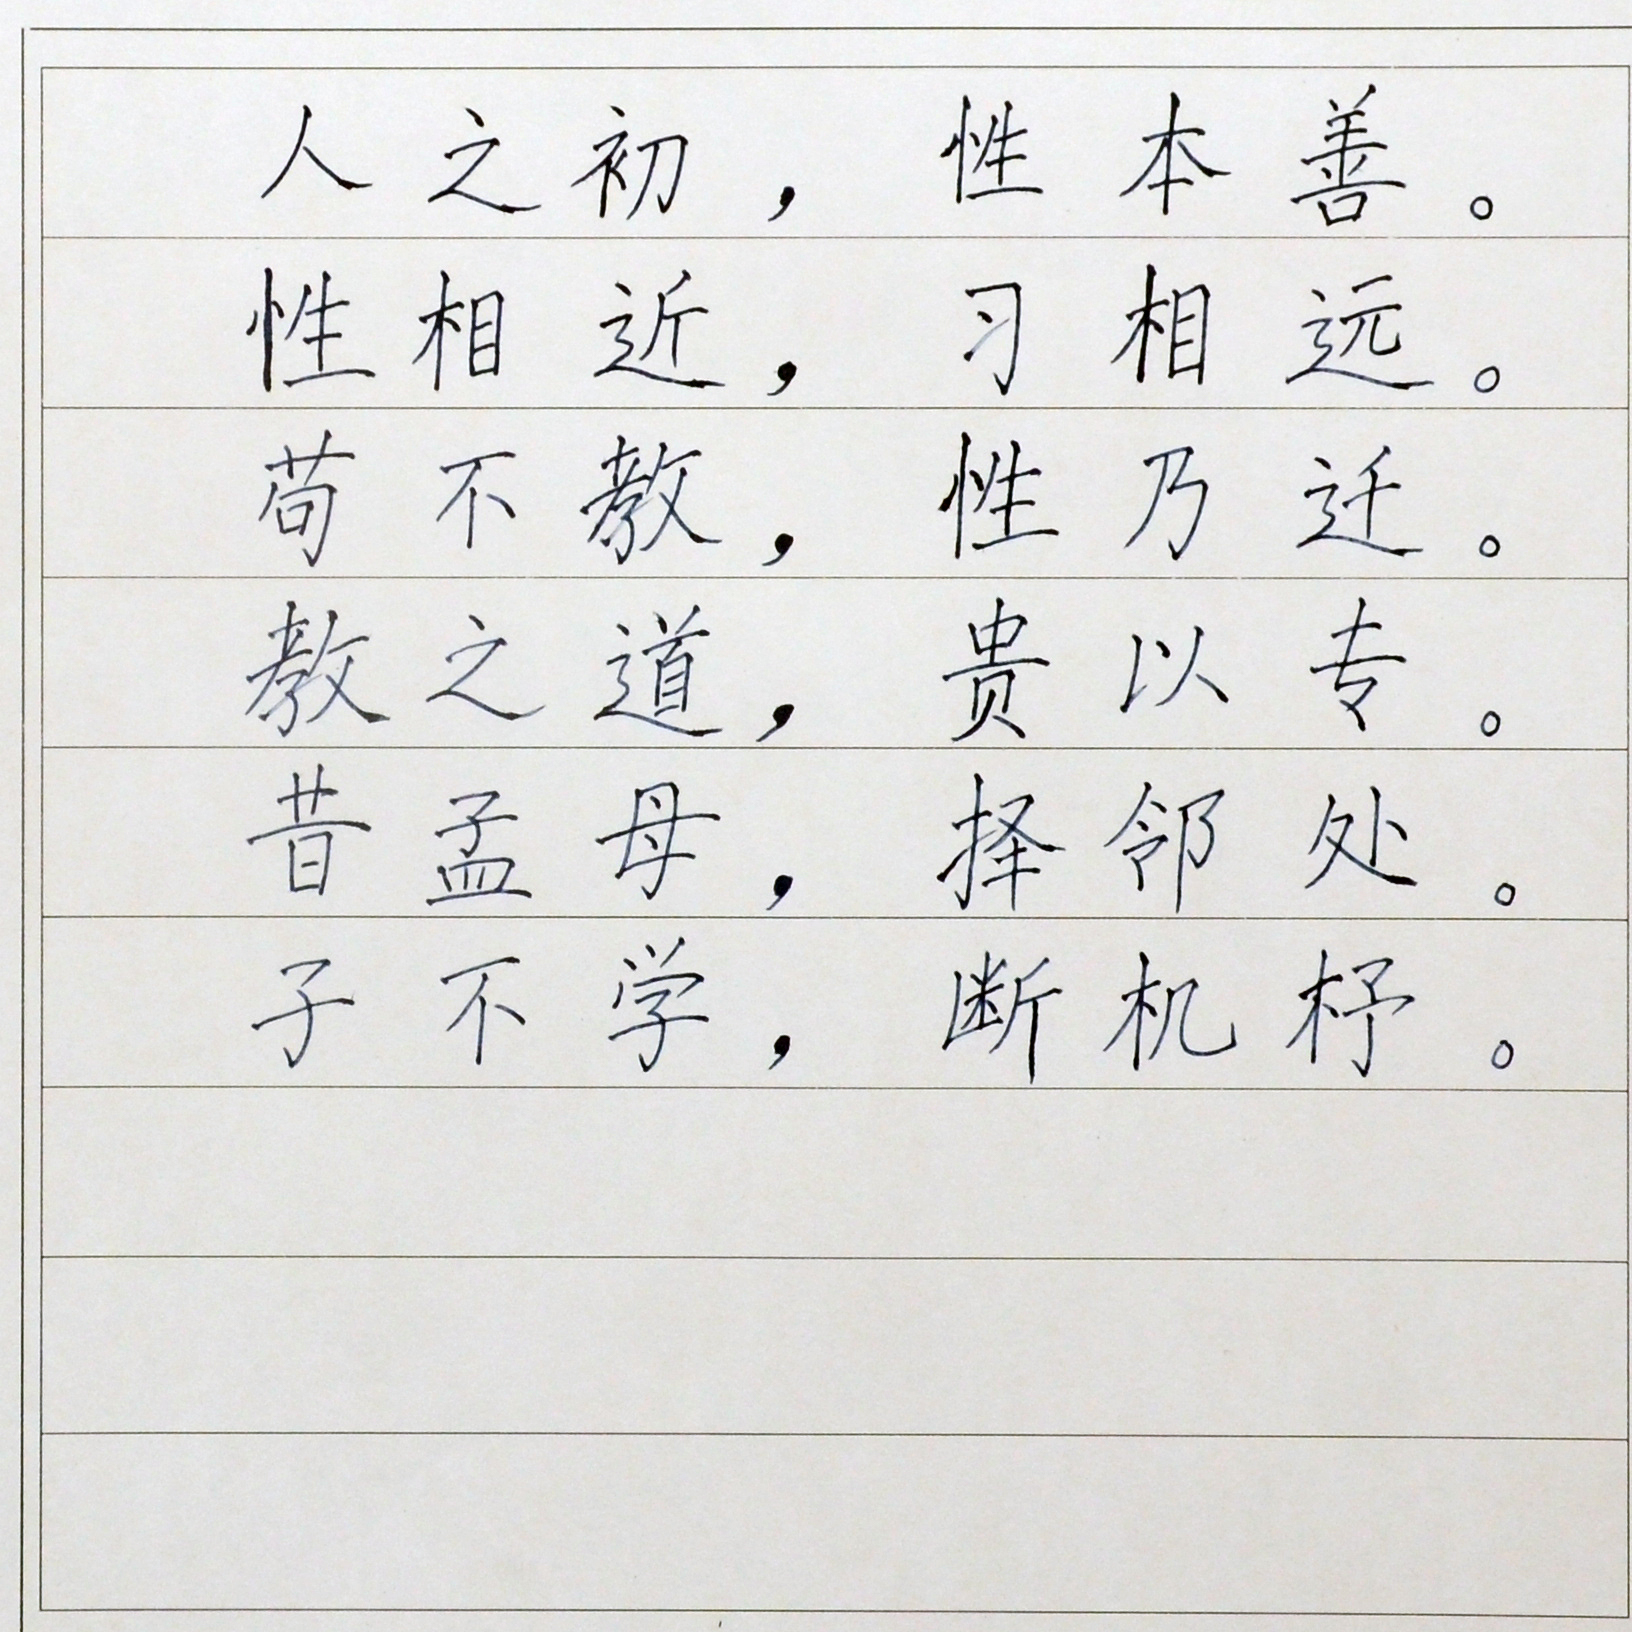 人之初，性本善。
性相近，习相远。
苟不教，性乃迁。
教之道，贵以专。
昔孟母，择邻处。
子不学，断机杼。